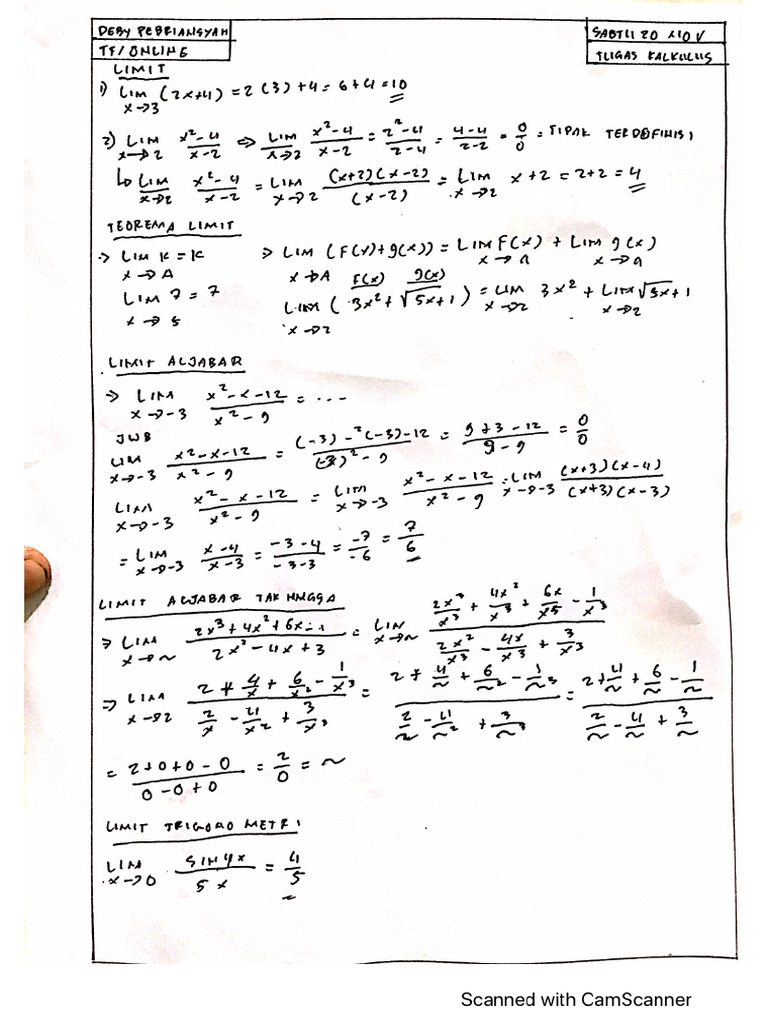 DEBY PEBRIANSYAH
TF/ONLINE
SABTU 20 NOV
TUGAS KALKULUS
LIMIT
1) LIM x→3 (2x+4) = 2(3)+4 = 6+4 = 10
2) LIM x→2 x²-4/x-2 ⇒ LIM x→2 x²-4/x-2 = 2²-4/2-4 = 4-4/2-2 = 0/0 = TIDAK TERDEFINISI
↳ LIM x→2 x²-4/x-2 = LIM x→2 (x+2)(x-2)/(x-2) = LIM x→2 x+2 = 2+2 = 4
TEOREMA LIMIT
→ LIM x→A K = K
⇒ LIM x→A (F(x)+g(x)) = LIM x→a F(x) + LIM x→a g(x)
LIM x→5 7 = 7
F(x) g(x)
LIM x→2 (3x²+√5x+1) = LIM x→2 3x² + LIM x→2 √5x+1
LIMIT ALJABAR
⇒ LIM x→-3 x²-x-12/x²-9 = ...
JWB
LIM x→-3 x²-x-12/x²-9 = (-3)-²(-3)-12/(-3)²-9 = 9+3-12/9-9 = 0/0
LIM x→-3 x²-x-12/x²-9 = LIM x→-3 x²-x-12/x²-9 = LIM x→-3 (x+3)(x-4)/(x+3)(x-3)
= LIM x→-3 x-4/x-3 = -3-4/-3-3 = -7/-6 = 7/6
LIMIT ALJABAR TAK HINGGA
⇒ LIM x→~ 2x³+4x²+6x-1/2x²-4x+3 = LIM x→~ 2x³/x³ + 4x²/x³ + 6x/x5 - 1/x³ / 2x²/x³ - 4x/x³ + 3/x³
⇒ LIM x→2 2+4/x+6/x²-1/x³ / 2/x-4/x²+3/x³ = 2+4/~+6/~²-1/~³ / 2/~-4/~²+3/~³ = 2+4/~+6/~-1/~ / 2/~-4/~+3/~
= 2+0+0-0/0-0+0 = 2/0 = ~
LIMIT TRIGONO METRI
LIM x→0 SIN4x/5x = 4/5
Scanned with CamScanner